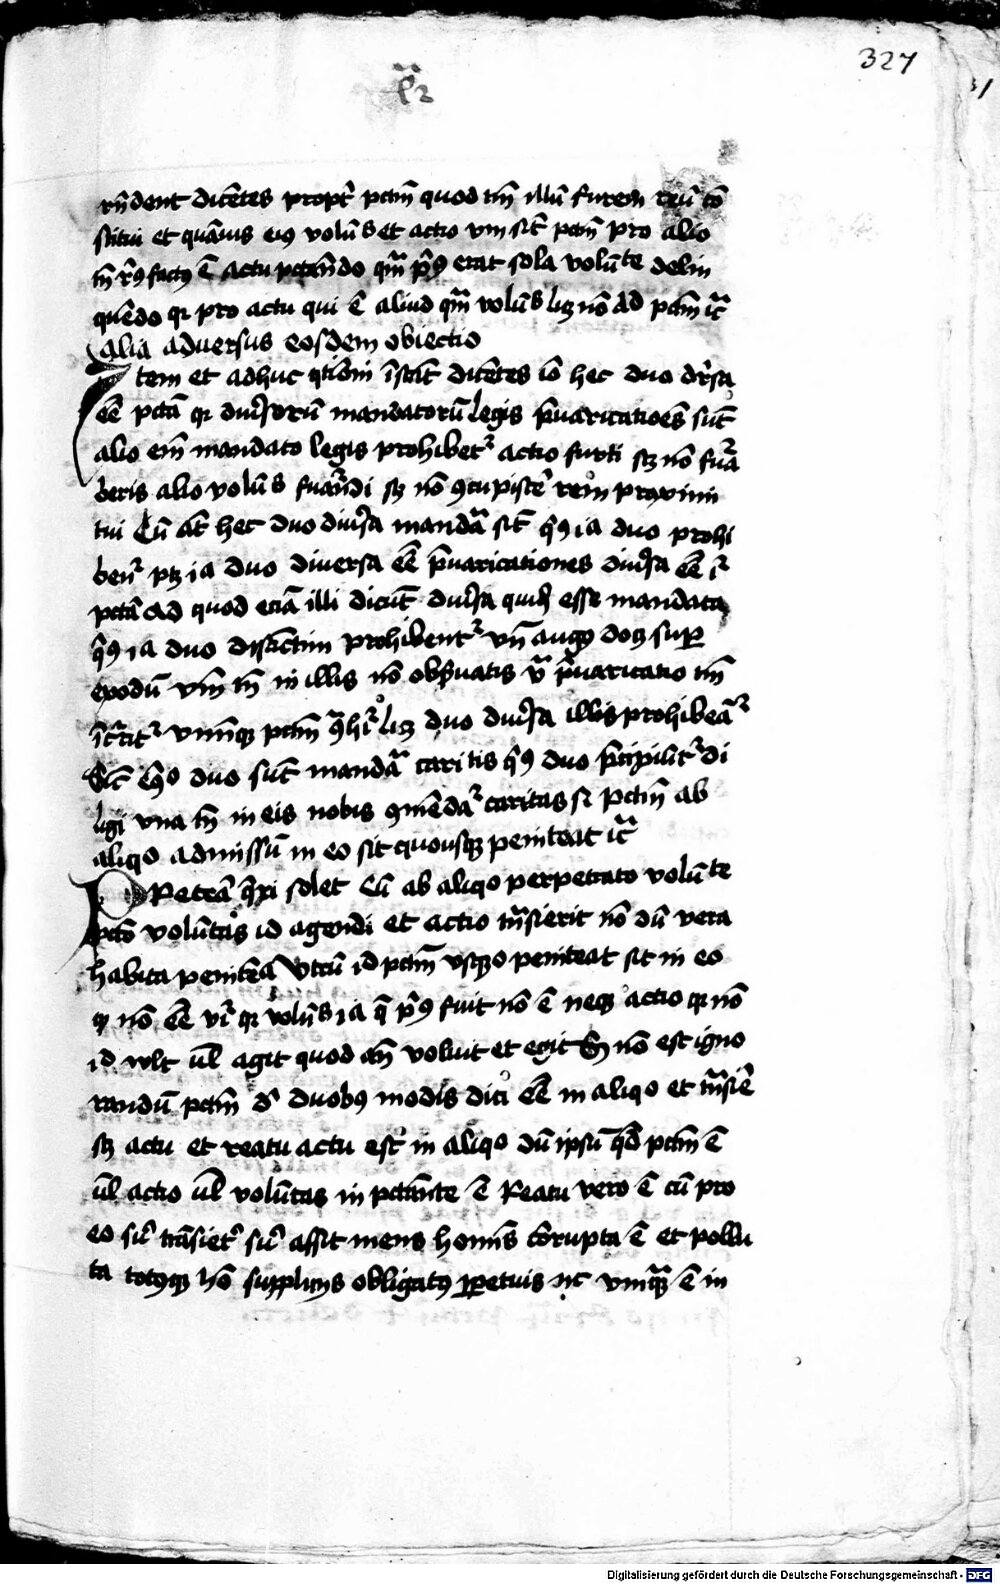 327
rn̄dent dicētes propt᷑ pctm̄ quod tm̄ illū furem reū cō
stitui et quāuis eiꝰ volūs et actio vm̄ sīt pctm̄ pro alio
tm̄ r̄ꝰ factꝰ ē actu pctādo qm̄ pꝰ erat sola volūte delin
quēdo qꝛ pro actu qui ē aliud qm̄ volūs lꝫ nō ad pctm̄
alia adversus eosdem obiectio
Item et adhuc q̄tiōm īstāt dicētes iō hec duo
eē pctā qꝛ diu͛sorū mandatorū legis p̄uaricatiōes sūt
alio em̄ mandato legis prohibet᷑ actio furti sꝫ nō fu᷑a
beris alio volūs furādi sꝫ nō ꝯcupiscē rem proximi
tui Cū āt hec duo diu͛sa mandā sīt qꝰ ia duo prohi
ben᷑ ptꝫ ia duo diversa eē p̄uaricationes diu͛sa eē
pctā Ad quod eciā illi dicūt diu͛sa quidē esse mandata
qꝰ ia duo distīctim prohibent᷑ vn̄ augꝰ sup
exodū vm̄ tm̄ in illis nō obẜuatis p̄uaricatio tm̄
vnūqꝫ pctm̄ lꝫ duo diu͛sa illis prohibeā᷑
Sīc ergo duo sūt mandā caritis qꝰ duo p̄cipilit᷑ di
ligi vna tm̄ in eis nobis ꝯmēda᷑ caritas si pctm̄ ab
aliqo admissū in eo sit quousqꝫ peniteat
Preterā q̄ri solet Cū ab aliqo perpetrato volūte
pctō volūtas id agendi et actio trāsierit nō dū vera
habita penitēa Vtrū id pctm̄ vsqꝫ peniteat sit in eo
qꝛ nō eē vr̄ qꝛ volūs ia q̄ pꝰ fuit nō ē neqꝫ actio qꝛ nō
id vult ul̄ agit quod an̄ voluit et egit Sꝫ nō est igno
randū pctm̄ duobꝰ modis dici eē in aliqo et trāsiē
sꝫ actu et reatu actu est in aliqo dū ipsū qd̄ pctm̄ ē
ul̄ actio ul̄ volūtas in pctānte ē Reatu vero ē cū pro
eo siu̓ trāsiet᷑ siu̓ assit mens homīs corrupta ē et pollu
ta totusqꝫ hō suppliciis obligatꝰ ꝑpetuis vnūqꝫ ē in
Digitalisierung gefördert durch die Deutsche Forschungsgemeinschaft - DFG